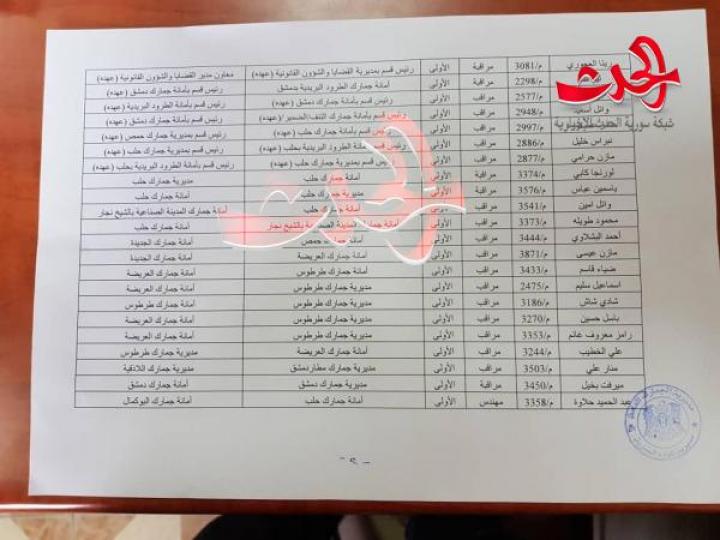 الحدث
شبكة سورية الحدث الإخبارية
رينا العجوري م/3081 مراقبة الأولى رئيس قسم بمديرية القضايا والشؤون القانونية (عهده) معاون مدير القضايا والشؤون القانونية (عهده)
م/2298 مراقب الأولى أمانة جمارك الطرود البريدية بدمشق رئيس قسم بأمانة جمارك دمشق (عهده)
م/2577 مراقب الأولى رئيس قسم بأمانة جمارك دمشق (عهده) رئيس قسم بأمانة الطرود البريدية (عهده)
وائل أسعد م/2948 مراقب الأولى رئيس قسم بأمانة جمارك التنف/الضمير (عهده) رئيس قسم بأمانة جمارك دمشق (عهده)
م/2997 مراقب الأولى رئيس قسم بأمانة جمارك حلب (عهده) رئيس قسم بمديرية جمارك حمص (عهده)
نبراس خليل م/2886 مراقب الأولى رئيس قسم بأمانة الطرود البريدية بحلب (عهده) رئيس قسم بمديرية جمارك حلب (عهده)
مازن حرامي م/2877 مراقب الأولى رئيس قسم بمديرية جمارك حلب (عهده) رئيس قسم بأمانة الطرود البريدية بحلب (عهده)
لورنجا كابي م/3374 مراقبة الأولى أمانة جمارك حلب مديرية جمارك حلب
ياسمين عباس م/3576 مراقبة الأولى مديرية جمارك حلب أمانة جمارك حلب
وائل أمين م/3541 مراقب الأولى أمانة جمارك حلب أمانة جمارك المدينة الصناعية بالشيخ نجار
محمود طويله م/3373 مراقب الأولى أمانة جمارك المدينة الصناعية بالشيخ نجار أمانة جمارك حلب
أحمد البشلاوي م/3444 مراقب الأولى أمانة جمارك حمص أمانة جمارك الجديدة
مازن عيسى م/3871 مراقب الأولى أمانة جمارك العريضة أمانة جمارك الجديدة
ضياء قاسم م/3433 مراقب الأولى أمانة جمارك طرطوس أمانة جمارك العريضة
اسماعيل سليم م/2475 مراقب الأولى مديرية جمارك طرطوس أمانة جمارك العريضة
شادي شاش م/3186 مراقب الأولى مديرية جمارك طرطوس أمانة جمارك طرطوس
باسل حسين م/3270 مراقب الأولى مديرية جمارك طرطوس أمانة جمارك العريضة
رامز معروف غانم م/3353 مراقب الأولى مديرية جمارك طرطوس أمانة جمارك العريضة
علي الخطيب م/3244 مراقب الأولى أمانة جمارك العريضة مديرية جمارك طرطوس
منار علي م/3503 مراقب الأولى مديرية جمارك مطار دمشق مديرية جمارك اللاذقية
ميرفت بخيل م/3450 مراقبة الأولى مديرية جمارك دمشق أمانة جمارك دمشق
عبد الحميد حلاوة م/3358 مهندس الأولى أمانة جمارك حلب أمانة جمارك البوكمال